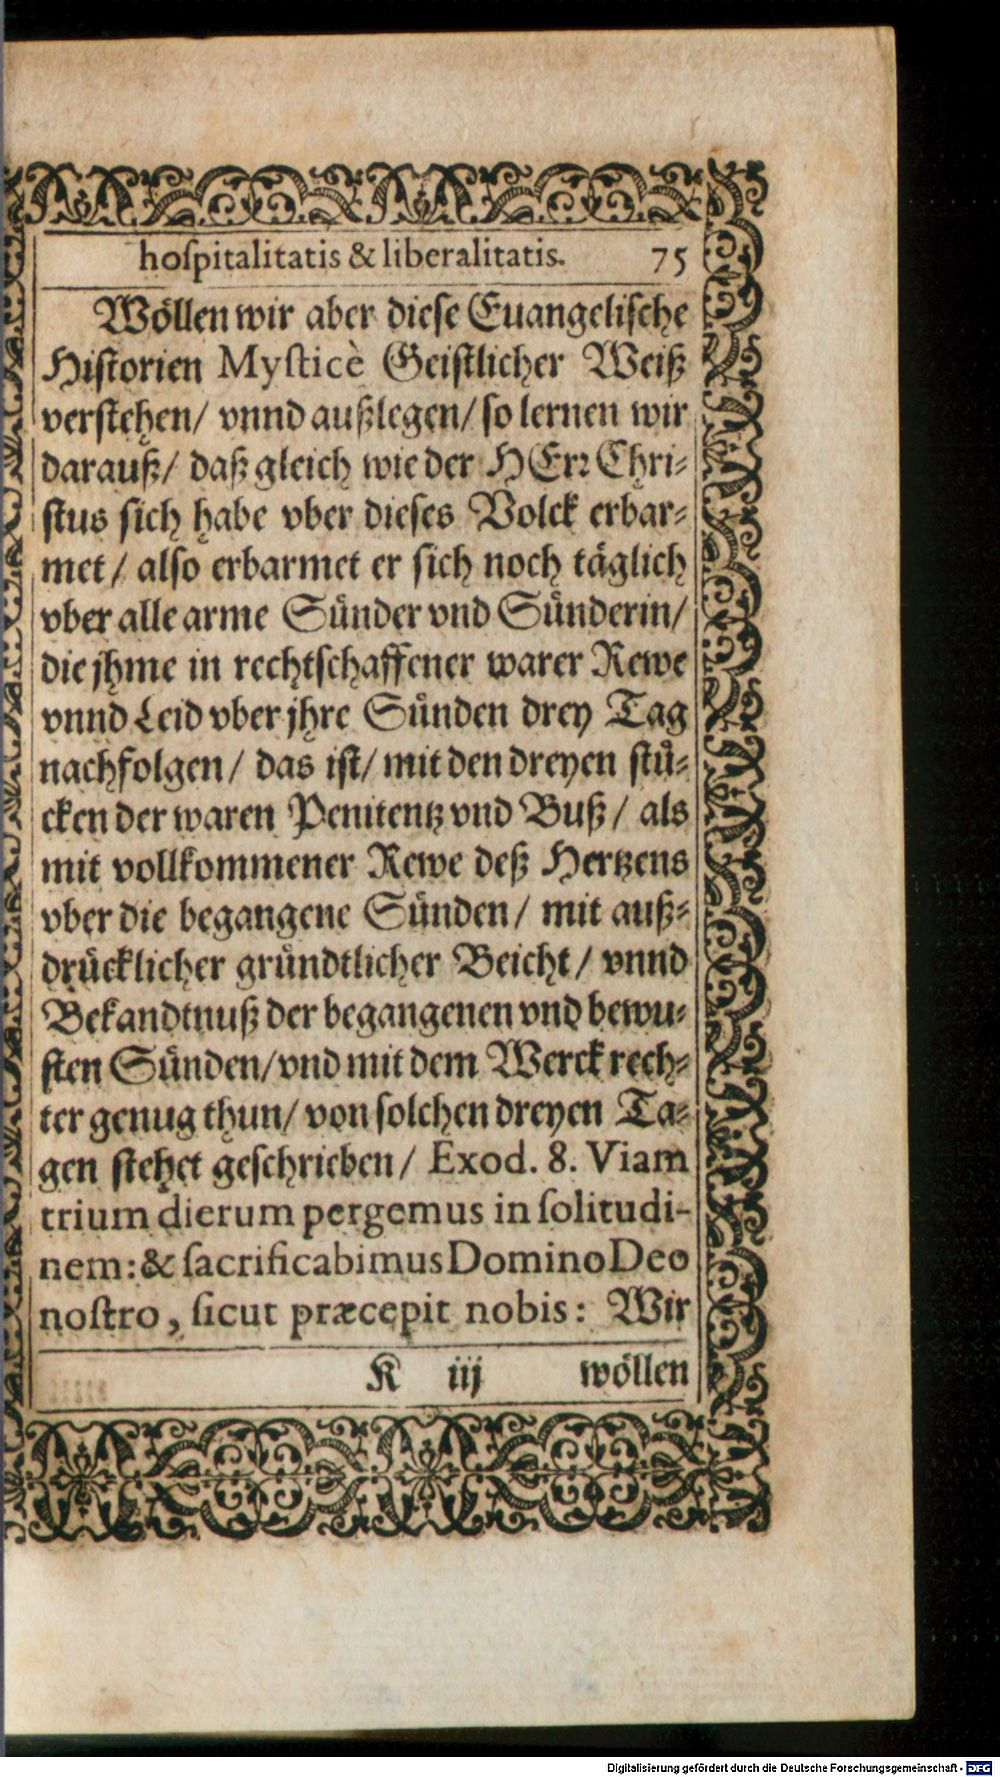 hoſpitalitatis & liberalitatis. 75
Wöllen wir aber dieſe Euangeliſche
Hiſtorien Myſticè Geiſtlicher Weiß
verſtehen/ vnnd außlegen/ ſo lernen wir
darauß/ daß gleich wie der HErꝛ Chri⸗
ſtus ſich habe vber dieſes Volck erbar⸗
met/ alſo erbarmet er ſich noch täglich
vber alle arme Sünder vnd Sünderin/
die jhme in rechtſchaffener warer Rewe
vnnd Leid vber jhre Sünden drey Tag
nachfolgen/ das iſt/ mit den dreyen ſtü⸗
cken der waren Penitentz vnd Buß/ als
mit vollkommener Rewe deß Hertzens
vber die begangene Sünden/ mit auß⸗
drücklicher gründtlicher Beicht/ vnnd
Bekandtnuß der begangenen vnd bewu⸗
ſten Sünden/ vnd mit dem Werck rech⸗
ter genug thun/ von ſolchen dreyen Ta⸗
gen ſtehet geſchrieben/ Exod. 8. Viam
trium dierum pergemus in ſolitudi-
nem: & ſacrificabimus Domino Deo
noſtro, ſicut præcepit nobis: Wir
K iij wöllen
Digitalisierung gefördert durch die Deutsche Forschungsgemeinschaft - DFG